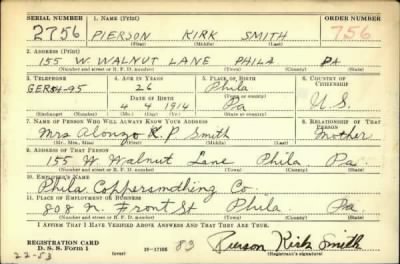 SERIAL NUMBER 1. NAME (Print) ORDER NUMBER
2756 PIERSON KIRK SMITH 756
(First) (Middle) (Last)
2. ADDRESS (Print)
155 W. WALNUT LANE PHILA PA
(Number and street or R. F. D. number) (Town) (County) (State)
3. TELEPHONE 4. AGE IN YEARS 5. PLACE OF BIRTH 6. COUNTRY OF CITIZENSHIP
GER 54-95 26 Phila
DATE OF BIRTH (Town or county)
4 4 1914 Pa U.S.
(Exchange) (Number) (Mo.) (Day) (Yr.) (State or country)
7. NAME OF PERSON WHO WILL ALWAYS KNOW YOUR ADDRESS 8. RELATIONSHIP OF THAT PERSON
Mrs Alonzo R. P Smith Mother
(Mr., Mrs., Miss) (First) (Middle) (Last)
9. ADDRESS OF THAT PERSON
155 W. Walnut Lane Phila. Pa.
(Number and street or R. F. D. number) (Town) (County) (State)
10. EMPLOYER'S NAME
Phila. Coppersmothing Co.
11. PLACE OF EMPLOYMENT OR BUSINESS
808 N. Front St Phila. Pa
(Number and street or R. F. D. number) (Town) (County) (State)
I AFFIRM THAT I HAVE VERIFIED ABOVE ANSWERS AND THAT THEY ARE TRUE.
REGISTRATION CARD
D. S. S. Form 1 83 Pierson Kirk Smith
22-53 (Registrant's signature)